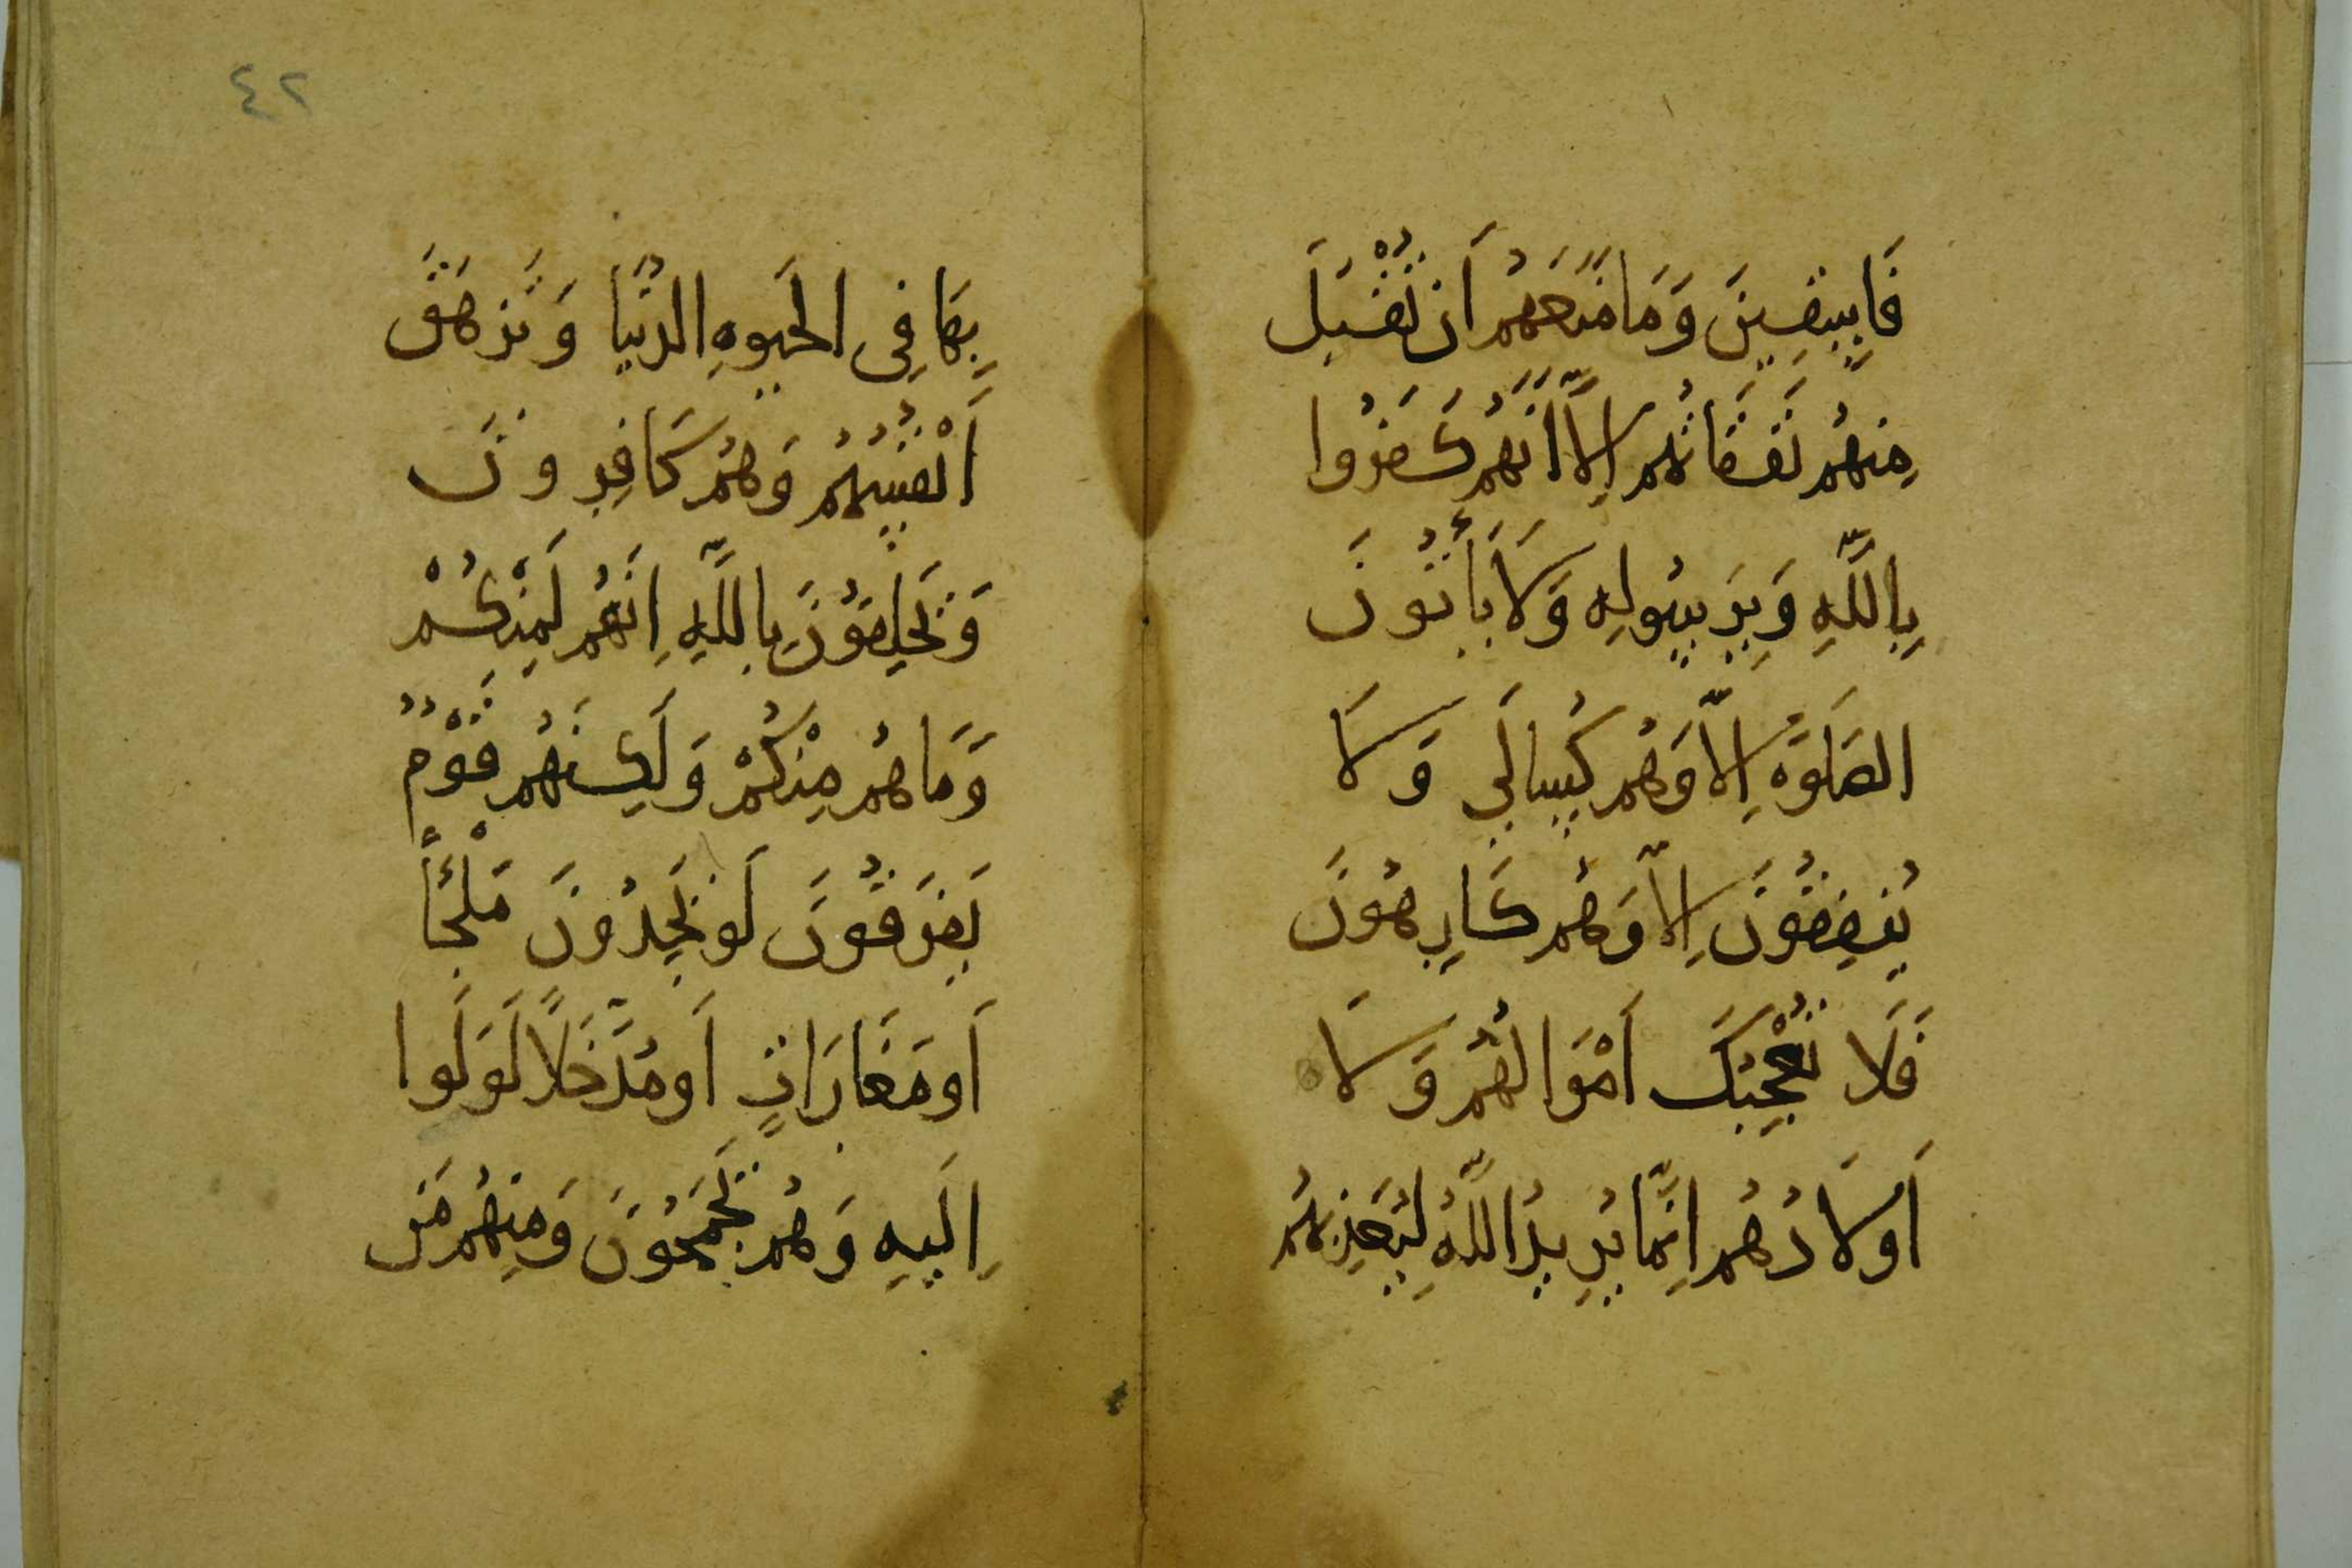 فَاسِقِينَ وَمَا مَنَعَهُمْ أَن تُقْبَلَ
مِنهُم نَفَقَاتُهُم اِلَّا اَنَّهُم كَفَرُوا
بِاللَّهِ وَبِرَسُولِهِ وَلَا يَأْتُونَ
الصَلَوٰةَ اِلَّا وَهُم كُسَالَي وَلَا
يُنفِقُونَ اِلَّا وَهُم كَارِهُونَ
فَلَا تُعْجِبْكَ اَمْوَالُهُم وَلَا
اَولَادُهُم اِنَّمَا يُرِيدُ اللَّهُ لِيُعَذِبَهُم
بِهَا فِي الحَيَوةِ الدُّنيَا وَتَزهَقَ
اَنْفُسُهُم وَهُم كَافِرونَ
وَيَحلِفُونَ بِاللَّهِ اِنَّهُم لَمِنْكُمْ
وَمَا هُم مِنْكُمْ وَلَكِنَهُم قَوْمٌ
يَفرَقُونَ لَو يَجِدُونَ مَلْجَأً
اَو مَغَارَاتٍ اَو مُدَّخَلًا لَوَلَوا
اِلَيهِ وَهُم يَجمَحُونَ وَمِنهُم مَن
٤٢